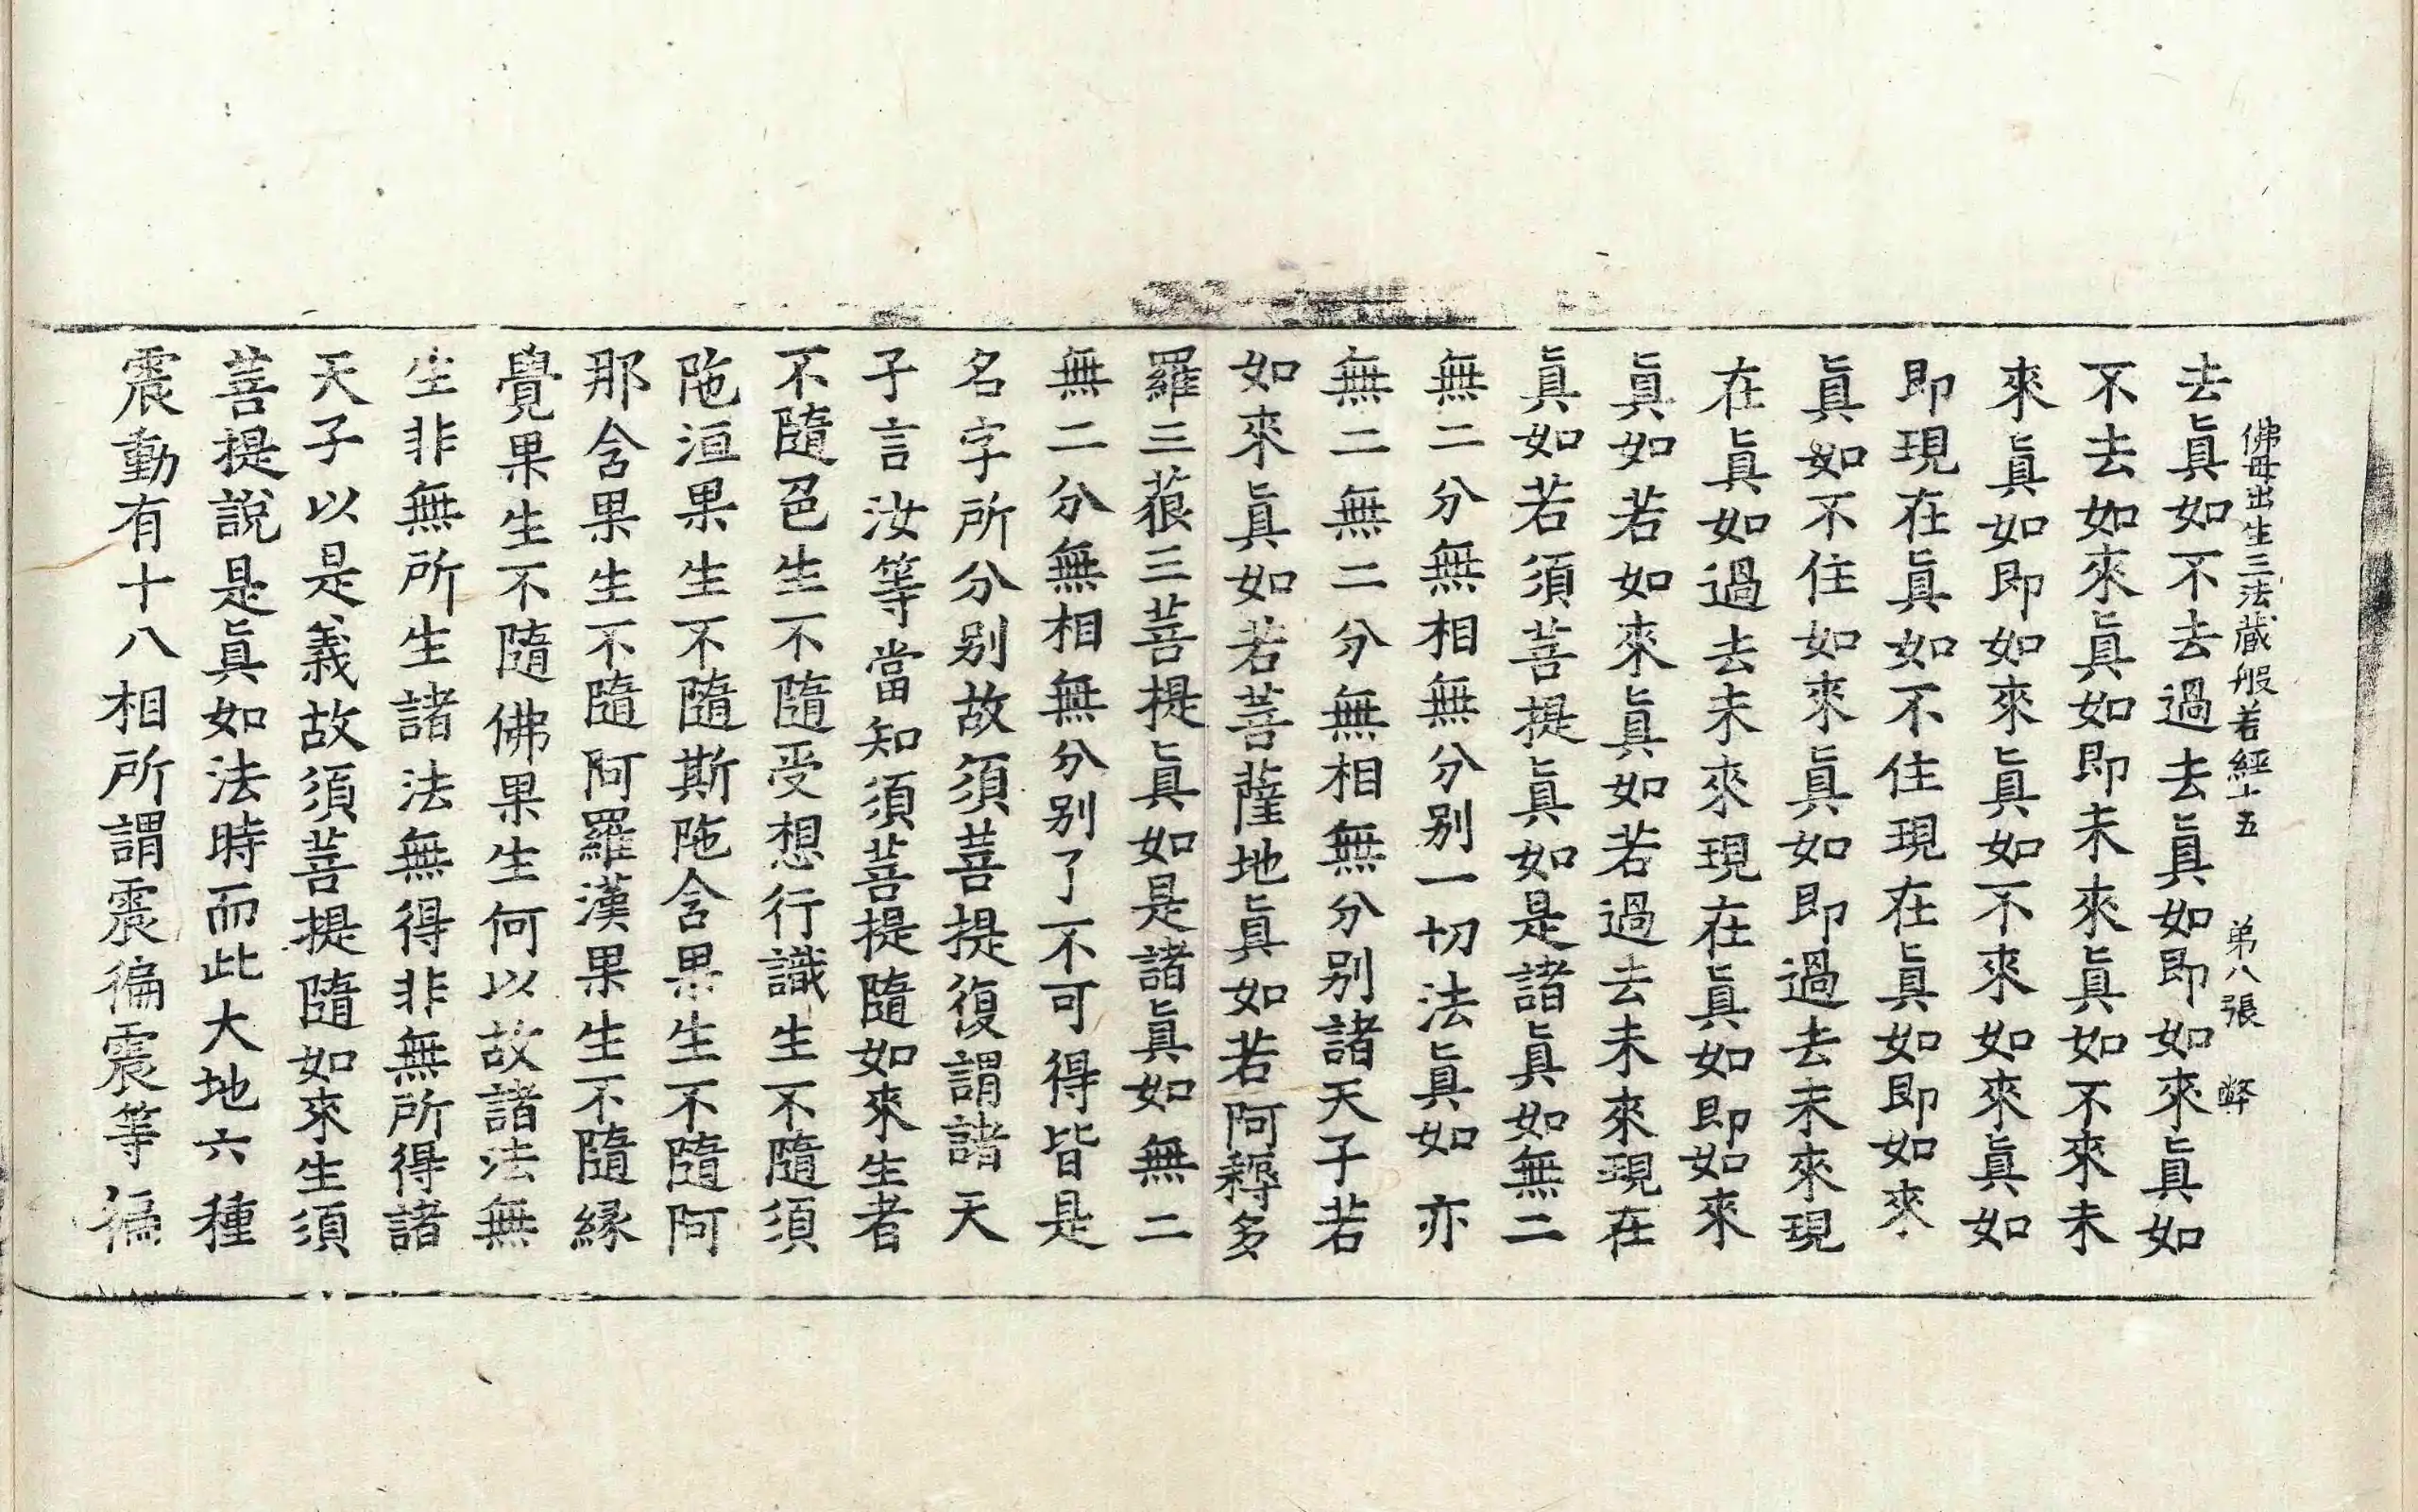 佛母出生三法藏般若經十五 弟八張 弊
去眞如不去過去眞如即如來眞如
不去如來眞如即未來眞如不來未
來眞如即如來眞如不來如來眞如
即現在眞如不住現在眞如即如來
眞如不住如來眞如即過去未來現
在眞如過去未來現在眞如即如來
眞如若如來眞如若過去未來現在
眞如若須菩提眞如是諸眞如無二
無二分無相無分别一切法眞如亦
無二無二分無相無分别諸天子若
如來眞如若菩薩地眞如若阿耨多
羅三藐三菩提眞如是諸眞如無二
無二分無相無分别了不可得皆是
名字所分别故須菩提復謂諸天
子言汝等當知須菩提隨如來生者
不隨色生不隨受想行識生不隨須
陁洹果生不隨斯陁含果生不隨阿
那含果生不隨阿羅漢果生不隨緣
覺果生不隨佛果生何以故諸法無
生非無所生諸法無得非無所得諸
天子以是義故須菩提隨如來生須
菩提說是眞如法時而此大地六種
震動有十八相所謂震徧震等徧